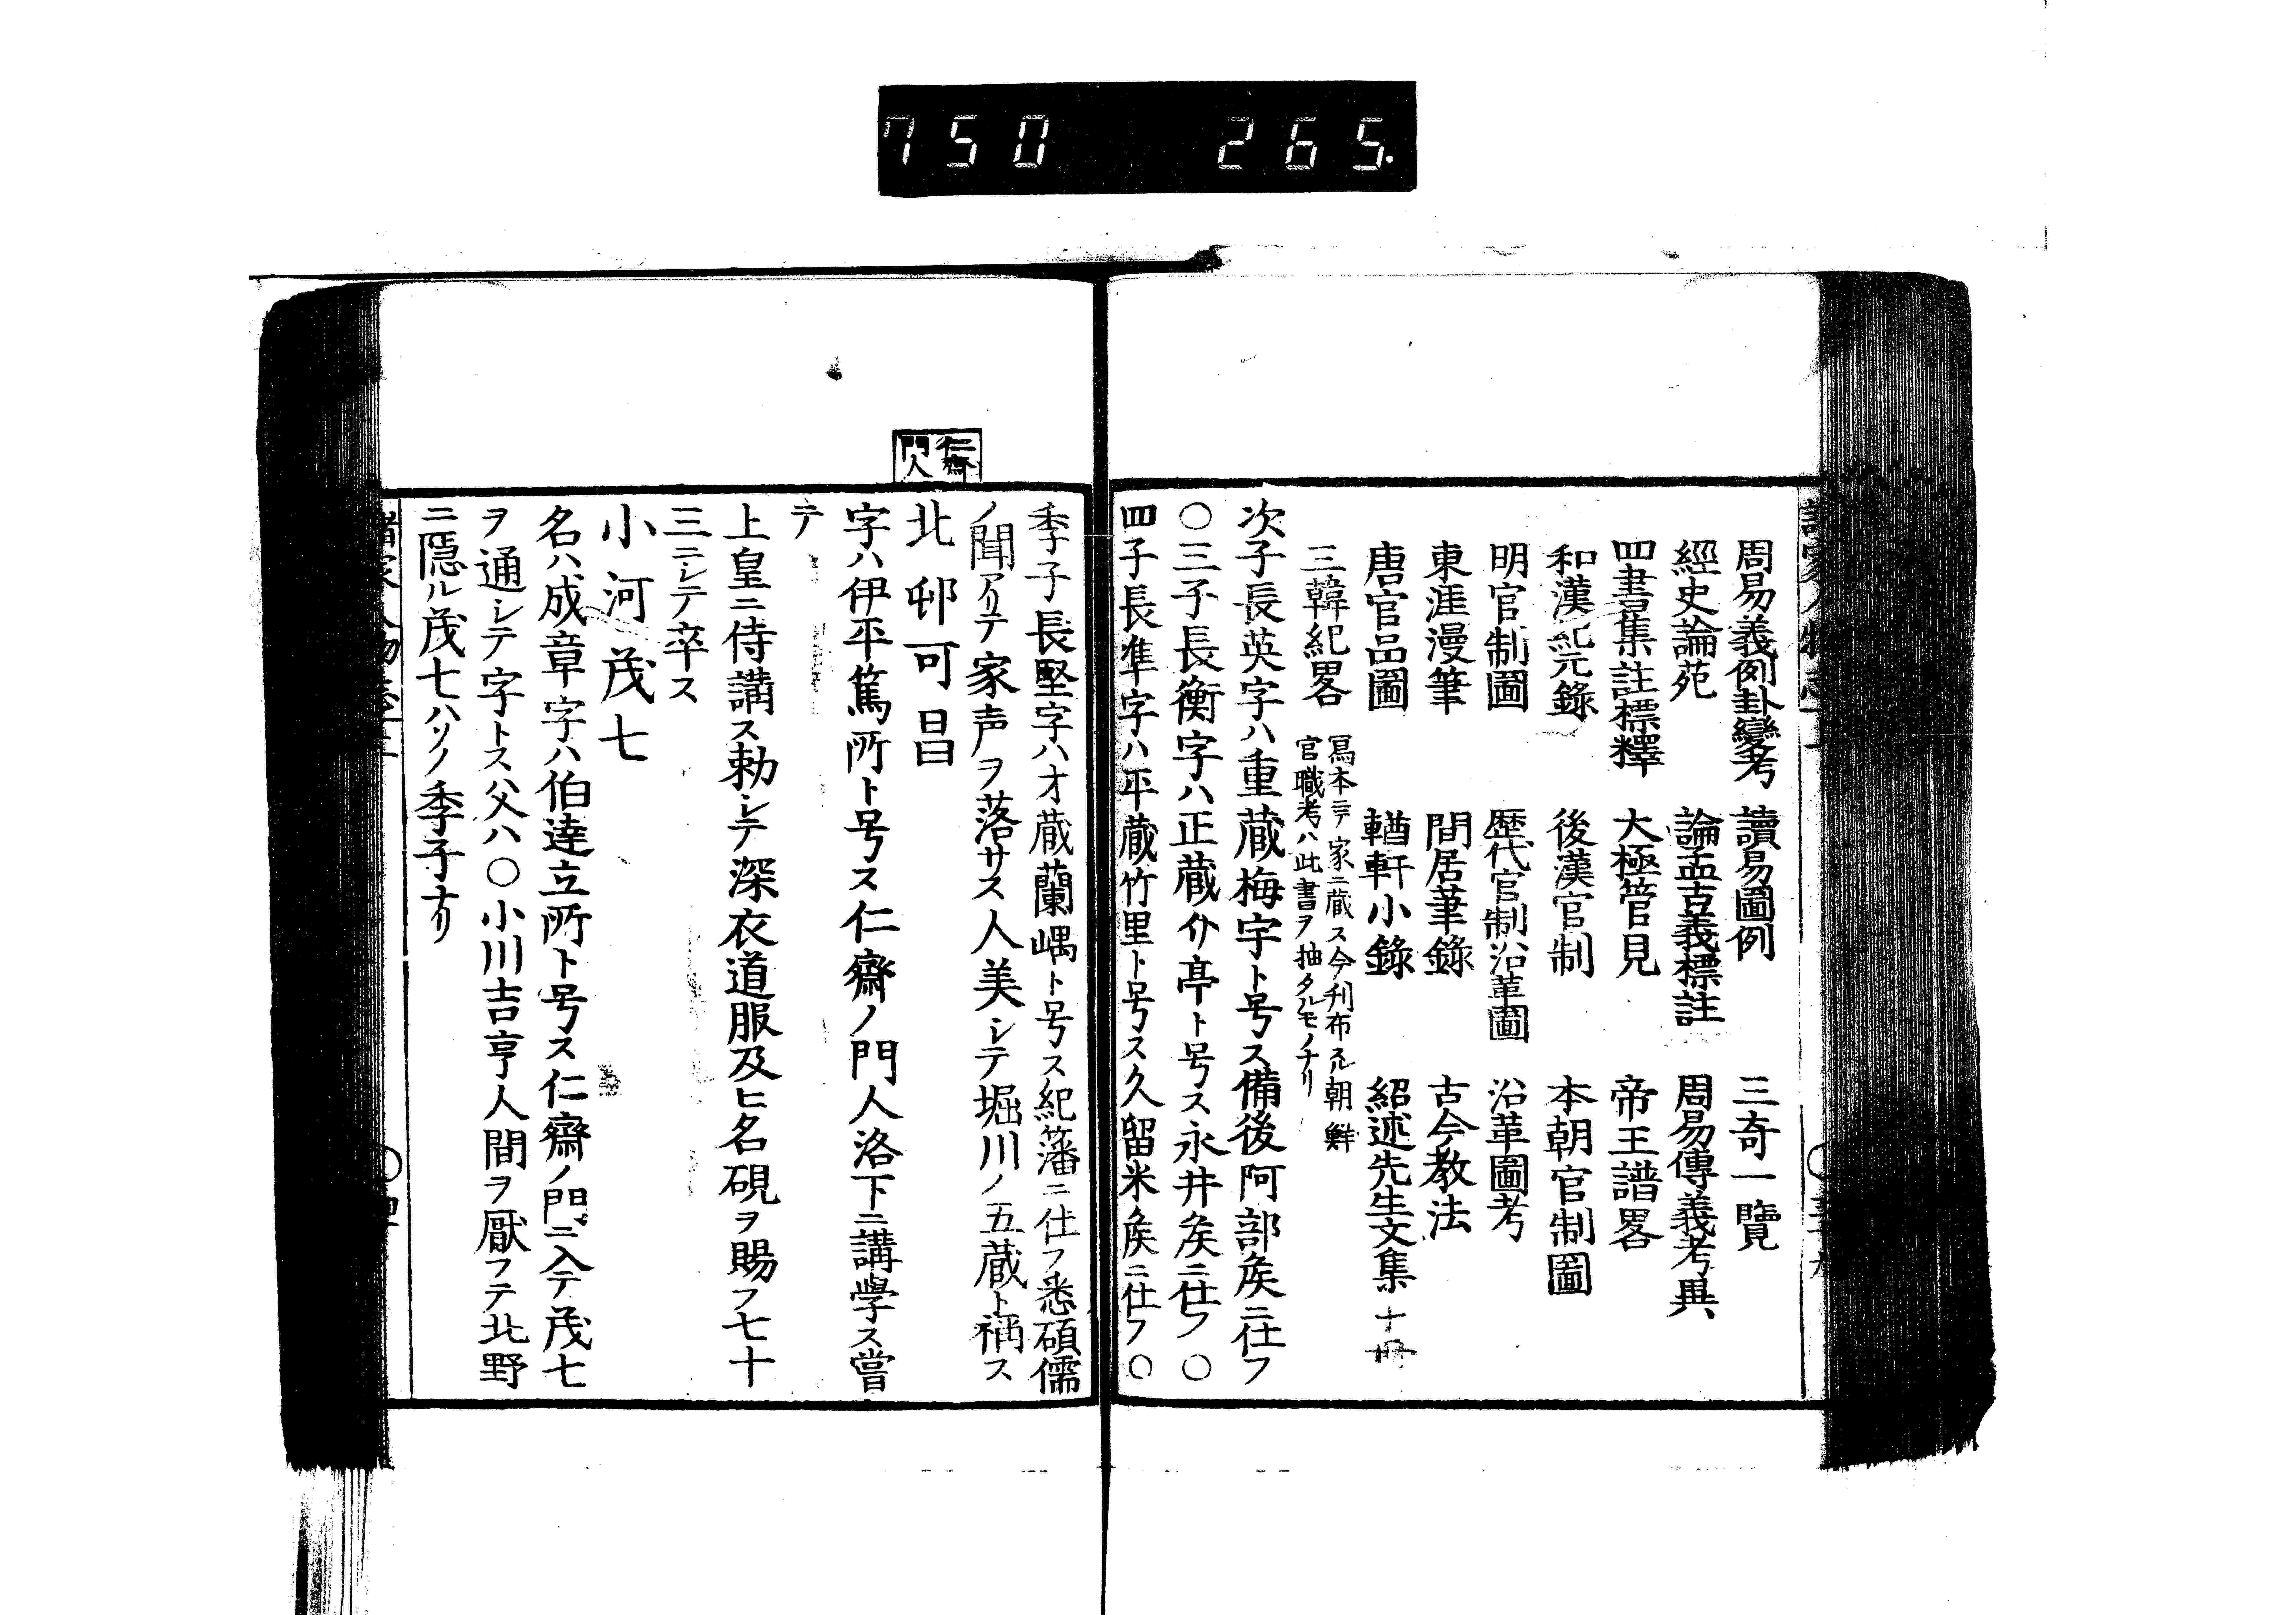 750 265.
周易義例卦變考 讀易圖例 三奇一覽
經史論苑 論孟古義標註 周易傳義考異
四書集註標釋 大極管見 帝王譜畧
和漢紀元錄 後漢官制 本朝官制圖
明官制圖 歷代官制沿革圖 沿革圖考
東涯漫筆 間居筆錄 古今教法
唐官品圖 輶軒小錄 紹述先生文集 十冊
三韓紀畧 冩本ニテ家ニ蔵ス今刋布スル朝鮮
官職考ハ此書ヲ抽タルモノナリ
次子長英字ハ重蔵梅宇ト号ス備後阿部矦ニ仕フ
〇三子長衡字ハ正蔵介亭ト号ス永井矦ニ仕フ〇
四子長準字ハ平蔵竹里ト号ス久留米矦ニ仕フ〇
季子長堅字ハ才蔵蘭嵎ト号ス紀藩ニ仕フ悉碩儒
ノ聞アリテ家声ヲ落サス人美シテ堀川ノ五蔵ト稱ス
仁齋
門人
北邨可昌
字ハ伊平篤所ト号ス仁齋ノ門人洛下ニ講學ス嘗
テ
上皇ニ侍講ス勅シテ深衣道服及ヒ名硯ヲ賜フ七十
三ニシテ卒ス
小河茂七
名ハ成章字ハ伯達立所ト号ス仁齋ノ門ニ入テ茂七
ヲ通シテ字トス父ハ〇小川吉亨人間ヲ厭フテ北野
ニ隱ル茂七ハソノ季子ナリ